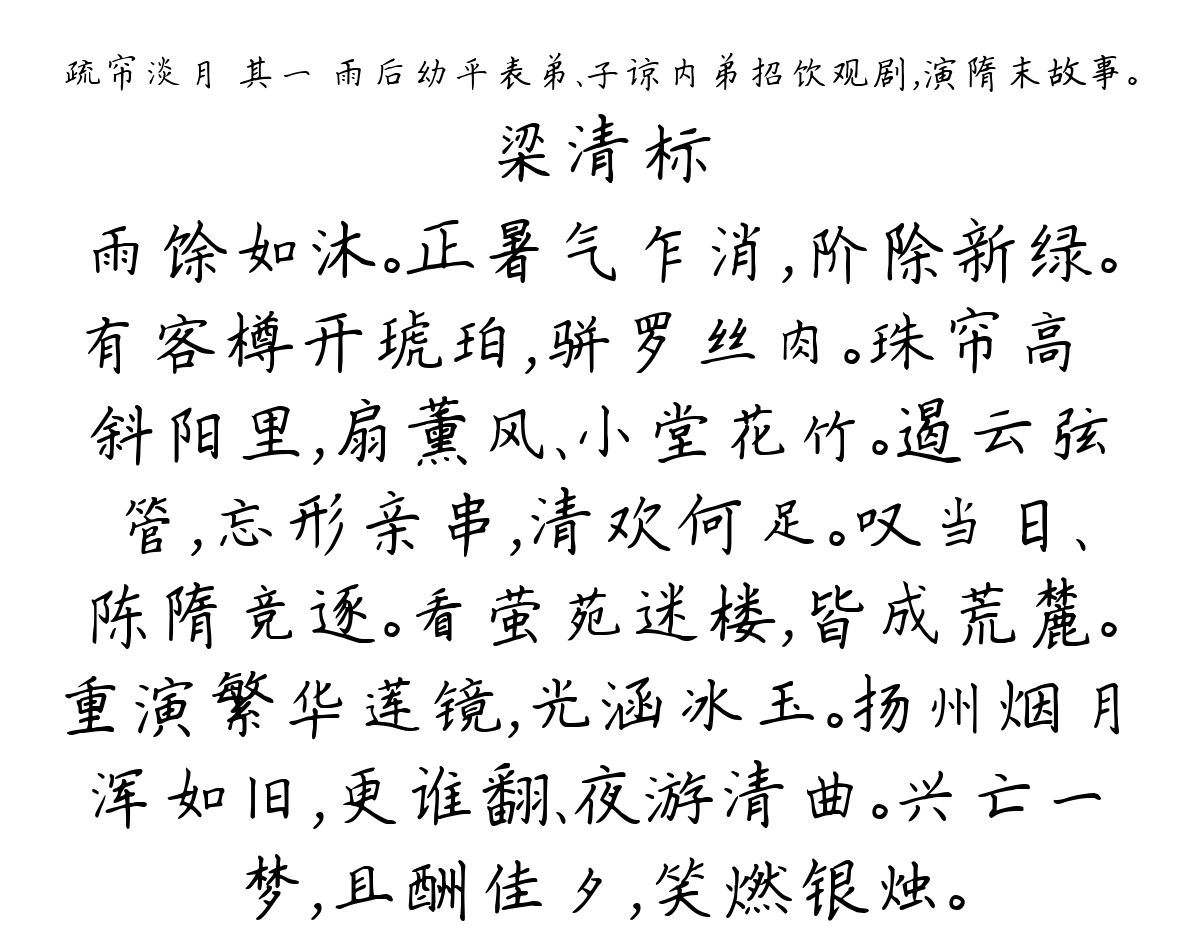 疏帘淡月 其一 雨后幼平表弟、子谅内弟招饮观剧,演隋末故事。
梁清标
雨馀如沐。正暑气乍消,阶除新绿。
有客樽开琥珀,骈罗丝肉。珠帘高
斜阳里,扇薰风、小堂花竹。遏云弦
管,忘形亲串,清欢何足。叹当日、
陈隋竞逐。看萤苑迷楼,皆成荒麓。
重演繁华莲镜,光涵冰玉。扬州烟月
浑如旧,更谁翻、夜游清曲。兴亡一
梦,且酬佳夕,笑燃银烛。